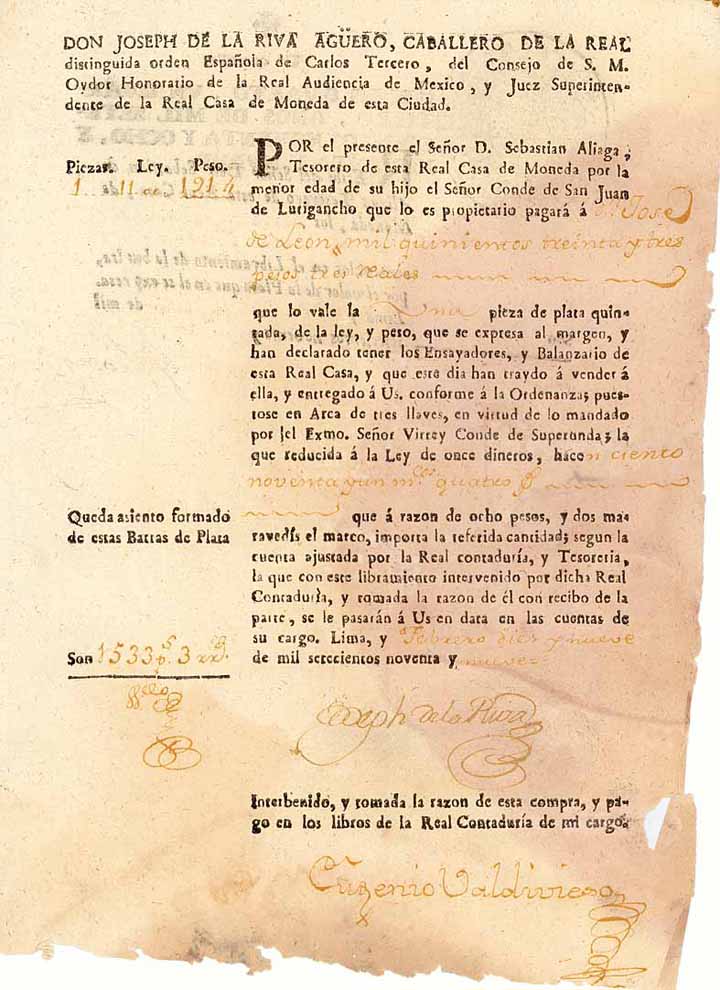 DON JOSEPH DE LA RIVA AGÜERO, CABALLERO DE LA REAL
distinguida orden Española de Carlos Tercero, del Consejo de S. M.
Oydor Honorario de la Real Audiencia de Mexico, y Juez Superinten-
dente de la Real Casa de Moneda de esta Ciudad.
Piezas. Ley. Peso.
1 11 ds 191.4
POR el presente el Señor D. Sebastian Aliaga,
Tesorero de esta Real Casa de Moneda por la
menor edad de su hijo el Señor Conde de San Juan
de Lurigancho que lo es propietario pagará á Dn. José
de Leon mil quinientos treinta y tres
pesos tres reales
que lo vale la Una pieza de plata quin-
tada, de la ley, y peso, que se expresa al margen, y
han declarado tener los Ensayadores, y Balanzario de
esta Real Casa, y que este dia han traydo á vender á
ella, y entregado á Us. conforme á la Ordenanza; pues-
tose en Arca de tres llaves, en virtud de lo mandado
por el Exmo. Señor Virrey Conde de Superunda; la
que reducida á la Ley de once dineros, hacen ciento
noventa y un mcos quatro
Queda asiento formado
de estas Barras de Plata
que á razon de ocho pesos, y dos ma-
ravedís el marco, importa la referida cantidad; segun la
cuenta ajustada por la Real contaduría, y Tesoreria,
la que con este libramiento intervenido por dicha Real
Contaduría, y tomada la razon de él con recibo de la
parte, se le pasarán á Us en data en las cuentas de
su cargo. Lima, y Febrero diez y nueve
de mil setecientos noventa y nueve.
Son 1533 ps. 3 rrs.
Joseph de la Riva
Interbenido, y tomada la razon de esta compra, y pa-
go en los libros de la Real Contaduría de mi cargo.
Eugenio Valdivieso